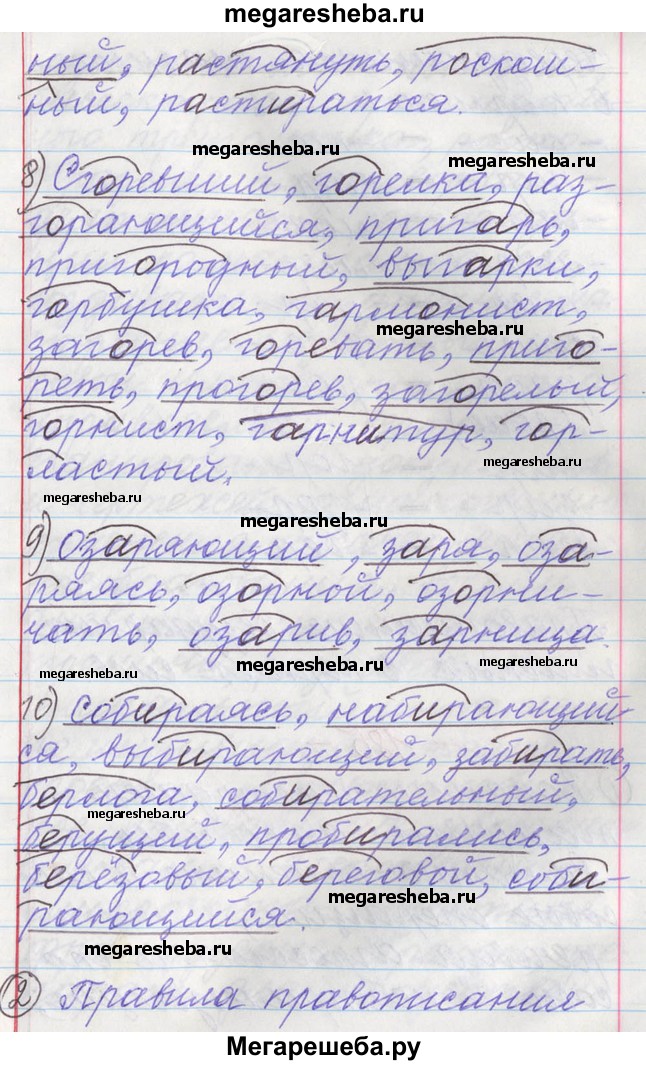 megaresheba.ru
ный, растянуть, роскош-
ный, растираться.
megaresheba.ru
megaresheba.ru
8) Сгоревший, горелка, раз-
горающийся, пригарь,
пригородный, выгарки,
горбушка, гармонист,
megaresheba.ru
загорев, горевать, приго-
реть, прогорев, загорелый,
горнист, гарнитур, гор-
ластый.
megaresheba.ru
megaresheba.ru
megaresheba.ru
9) Озаряющий, заря, оза-
ряясь, озорной, озорни-
чать, озарив, зарница.
megaresheba.ru
megaresheba.ru
megaresheba.ru
10) Собираясь, набирающий
ся, выбирающий, забирать,
берлога, собирательный,
megaresheba.ru
берущий, пробирались,
берёзовый, береговой, соби-
megaresheba.ru
рающийся.
megaresheba.ru
2 Правила правописания
Мегарешеба.ру